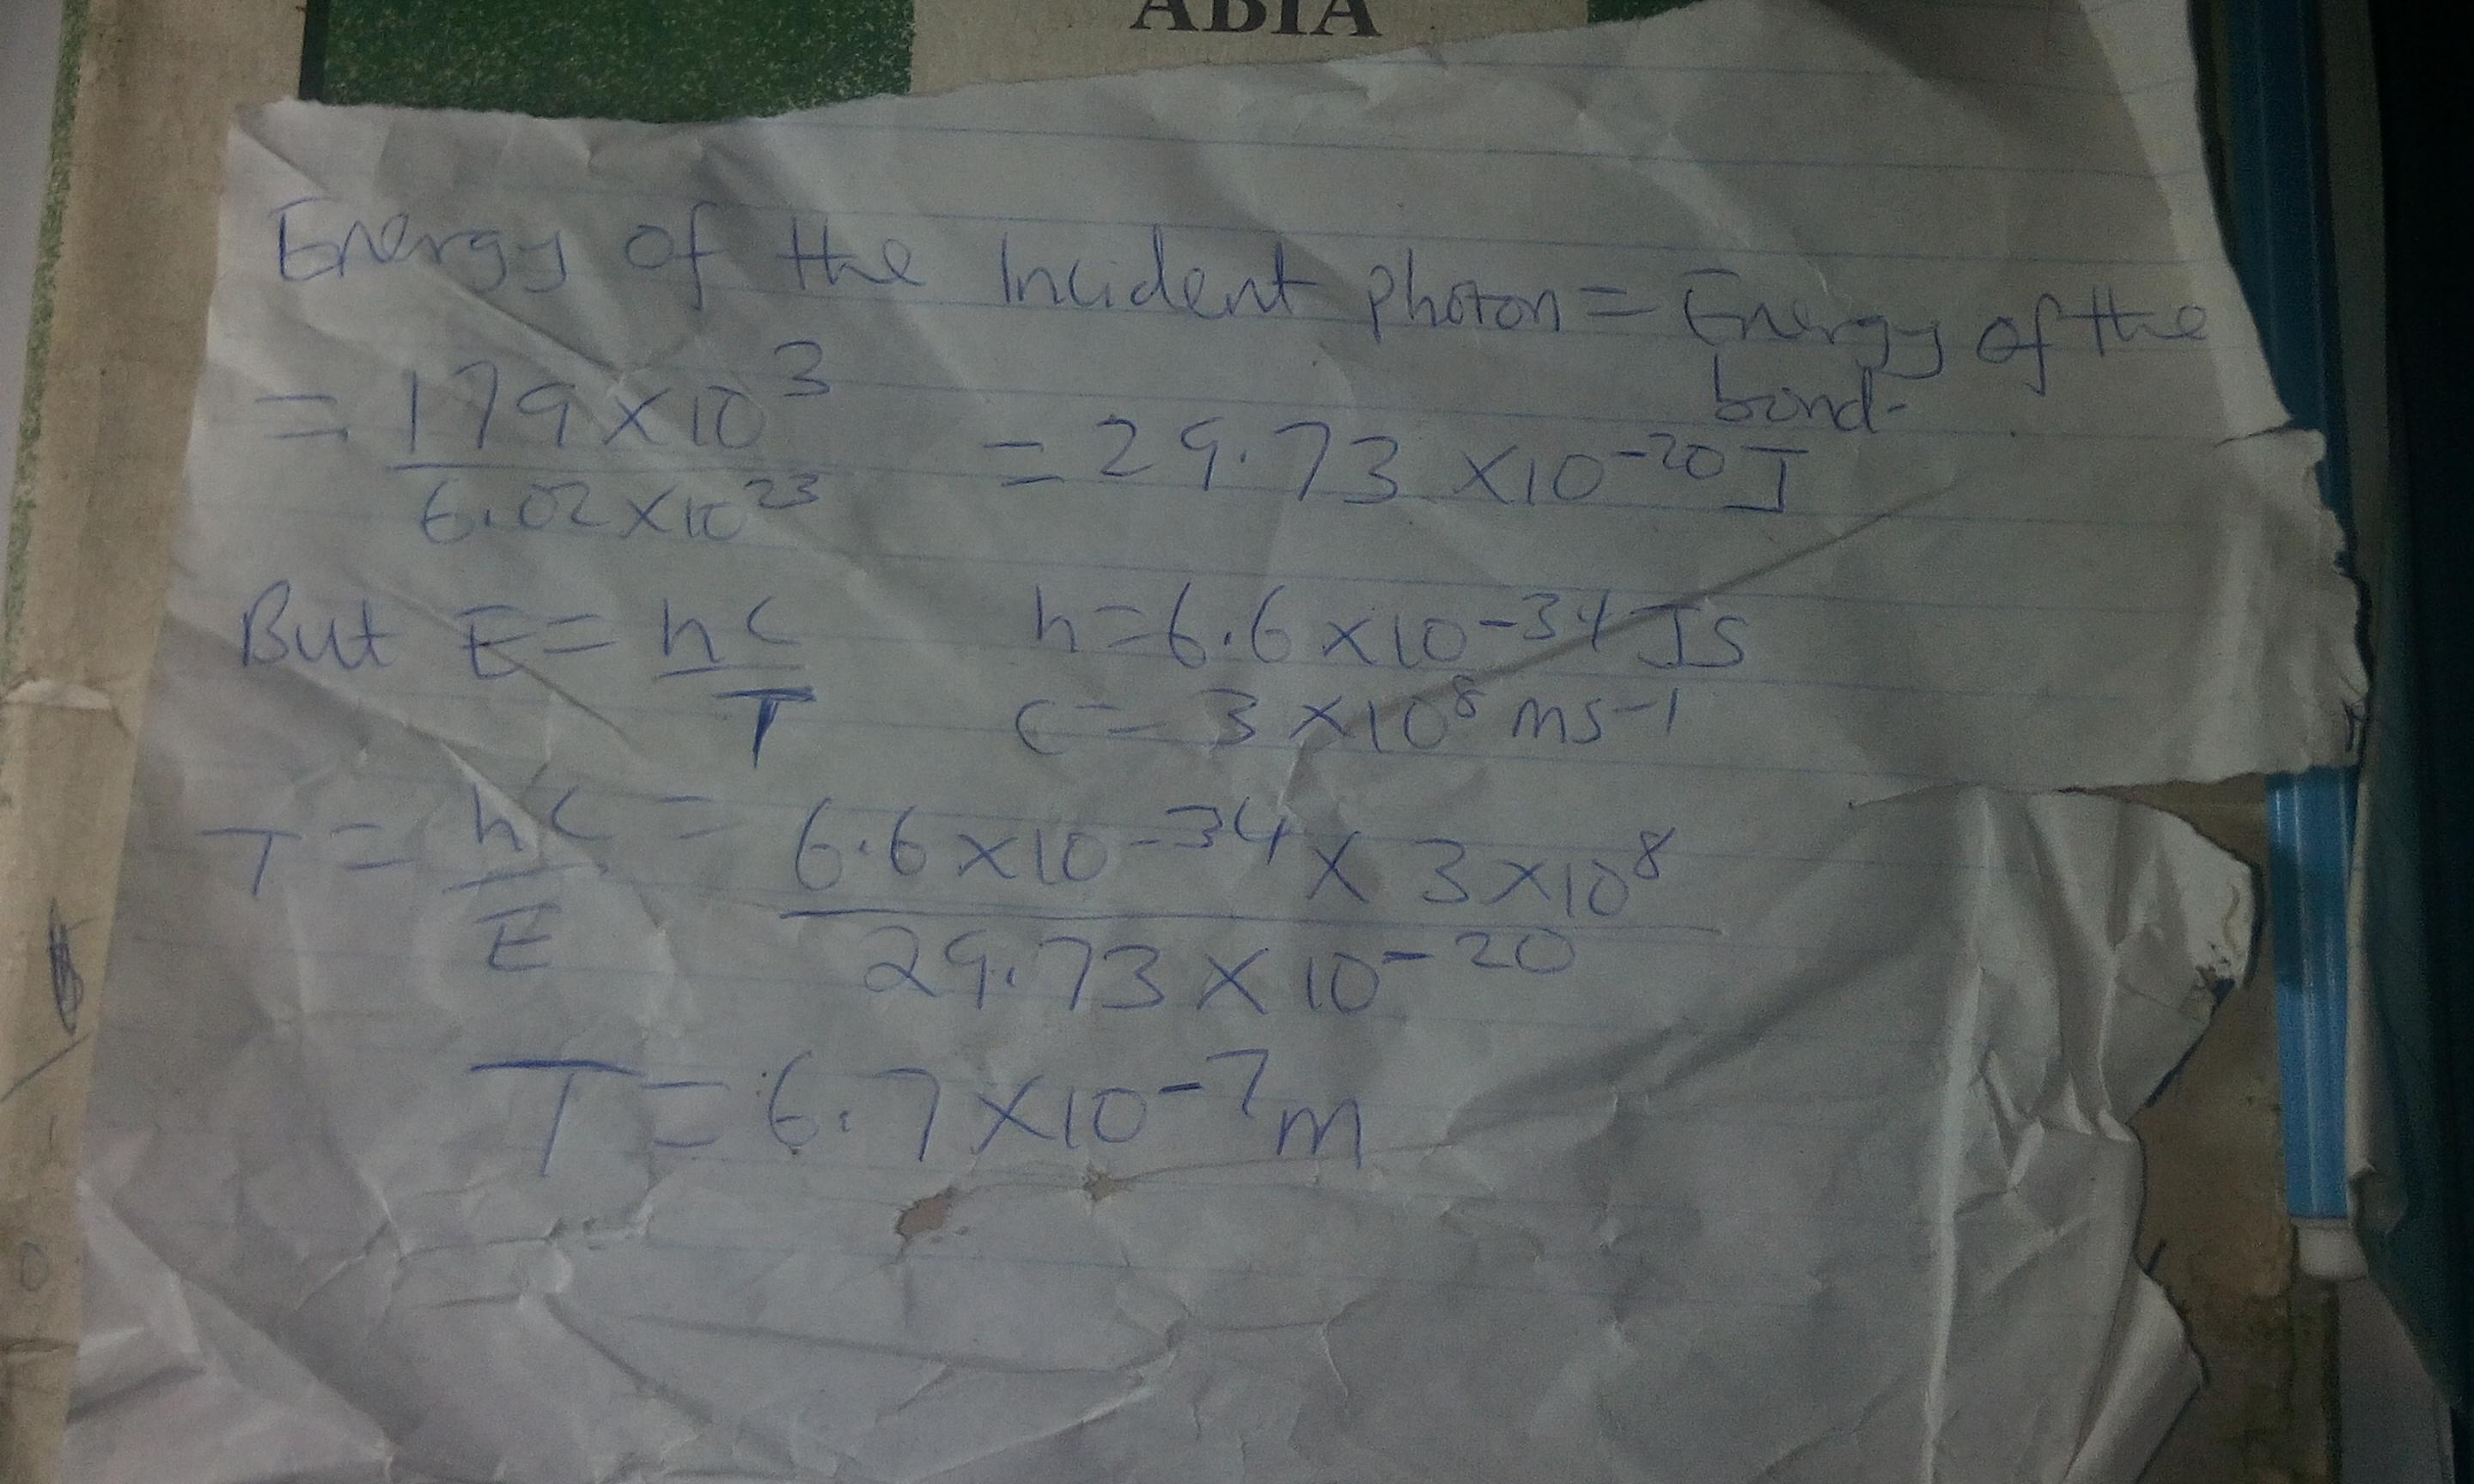 ABIA
Energy of the Incident photon = Energy of the
bond-
= 179 x 10³ / 6.02 x 10²³ = 29.73 x 10⁻²⁰ J
But E = hc / T h = 6.6 x 10⁻³⁴ JS
c = 3 x 10⁸ ms-1
T = hc / E = 6.6 x 10⁻³⁴ x 3 x 10⁸ / 29.73 x 10⁻²⁰
T = 6.7 x 10⁻⁷ m